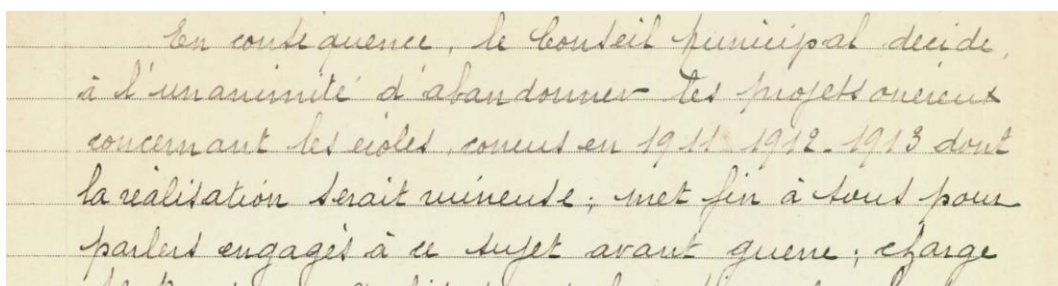 En conséquence, le Conseil municipal decide,
à l'unanimité d'abandonner les projets onéreux
concernant les écoles, concus en 1911-1912-1913 dont
la réalisation serait ruineuse; met fin à tous pour
parlers engagés à ce sujet avant guerre; charge